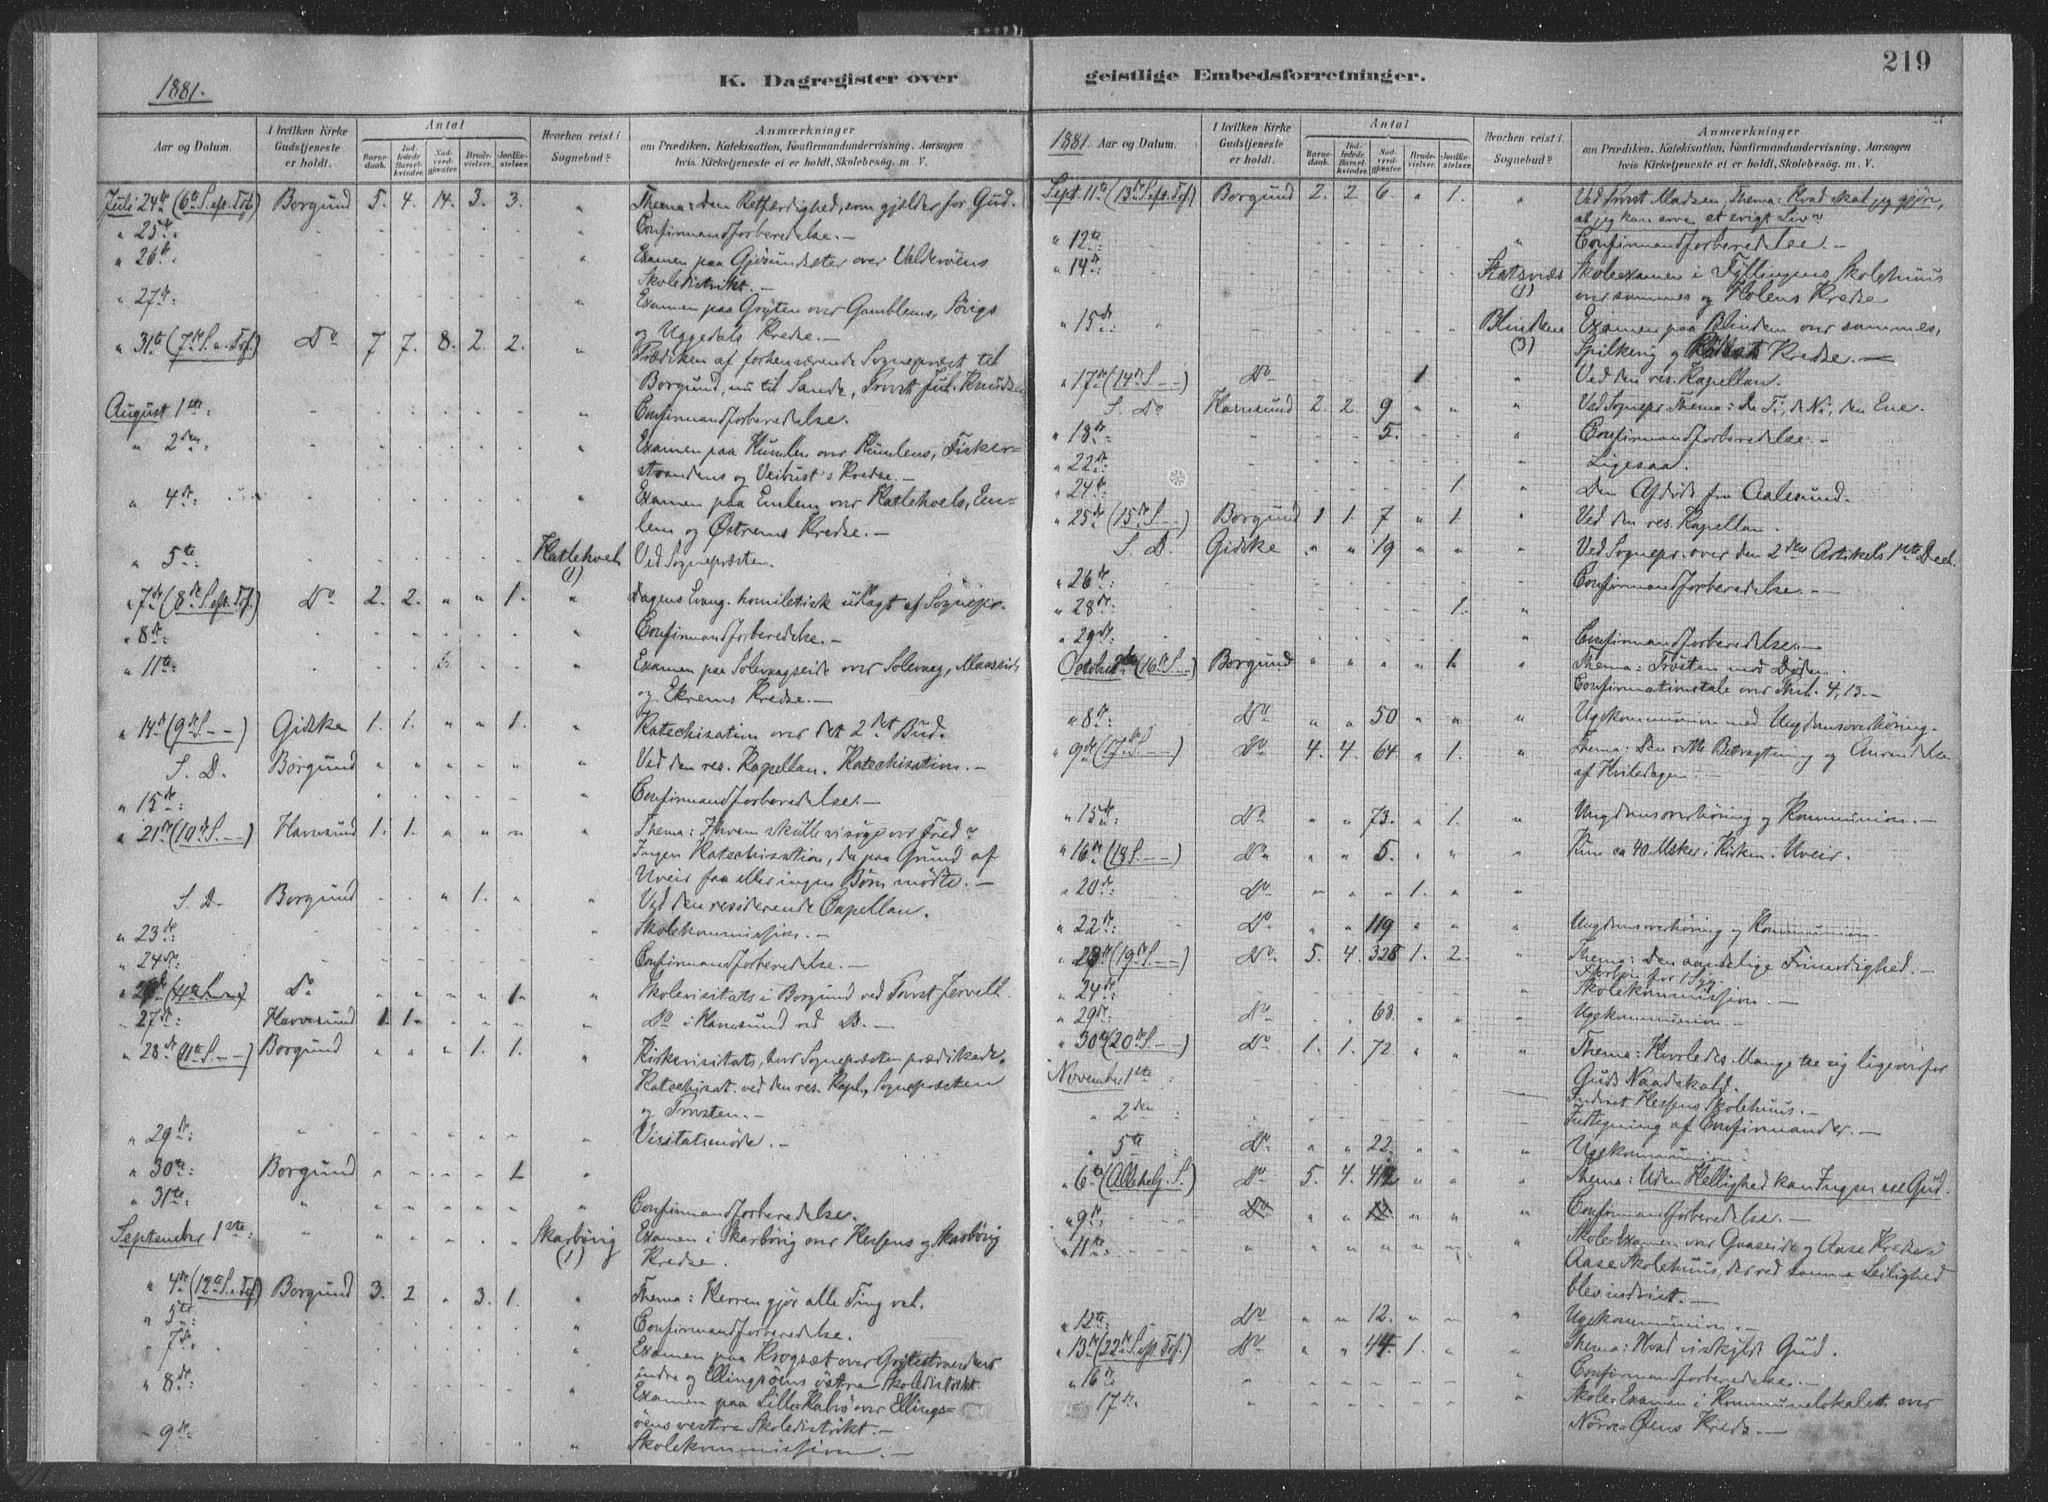 K. Dagregister over geistlige Embedsforretninger.
219
1881.
Aar og Datum.
I hvilken Kirke Gudstjeneste er holdt.
Antal
Barnedaab.
Indledede Barselkvinder.
Nadverdgjæster
Brudevielser.
Jordfæstelser.
Hvorhen reist i Sognebud?
Anmærkninger
om Prædiken, Katekisation, Konfirmandundervisning, Aarsagen
hvis Kirketjeneste ei er holdt, Skolebesøg. m. V.
Juli 24de (6te S. ep. Tref.) Borgund 5. 4. 14. 3. 3. " Thema: Den Retfærdighed, som gjælder for Gud.
" 25de Confirmandforberedelse.—
" 26de: Examen paa Gjøsundsæter over Valderøens
Skoledistrikt.—
" 27de: Examen paa Gryten over Gamblems, Søvigs
og Uggedals Kredse.—
" 31te (7de S. e. Tref.) Do 7 7. 8. 2. 2. " Prædiken af forhenværende Sognepræst til
Borgund, nu til Sande, Provst Jul. Knudsen
August 1ste: Confirmandforberedelse.
" 2den Examen paa Humlen over Humlens, Fisker-
strandens og Veibust's Kredse.—
" 4de: Examen paa Emlem over Katlehvels, Em-
lem og Østrems Kredse.—
" 5te Katlehvel (1) Ved Sognepræsten.
" 7de (8de S. ep. Tref.) Do 2. 2. " " 1. " Dagens Evang. homiletisk udlagt af Sognepr.
" 8de: Confirmandforberedelse.—
" 11te: Examen paa Solevaagseide over Solevaag, Mauseids
og Ekrems Kredse.—
" 14de (9de S. — —) Gidske 1. 1. " " 1. " Katechisation over det 2det Bud.
S. D. Borgund " " " " " " Ved den res. Kapellan. Katechisation.—
" 15de: Confirmandforberedelse.—
" 21de (10de S. — —) Havnsund 1. 1. " " " " Thema: I hvem skulle vi søge vor Fred?
Ingen Katechisation, da paa Grund af
Uveir faa eller ingen Børn mødte.—
S. D. Borgund 1. " Ved den residerende Capellan.
" 23de: Skolekommission.—
" 24de: Confirmandforberedelse.—
Do " " " " 1. " Skolevisitats i Borgund ved Provst Jervell.
" 27de: Havnsund 1. 1. Do i Havnsund ved Do.—
" 28de (11te S. — —) Borgund " " " 1. 1. " Kirkevisitats, hvor Sognepræsten prædikede.
Katechisat. ved den res. Kapl., Sognepræsten
og Provsten.—
" 29de: Visitatsmøde.—
" 30te: Borgund 1
" 31te: Confirmandforberedelse.
September 1ste: Skarbøvig (1) Examen i Skarbøvig over Hessens og Skarbøvig
Kredse.
" 4de (12te S. e. Tref.) Borgund 3. 2 " 3. 1. " Thema: Herren gjør alle Ting vel.
" 5te: Confirmandforberedelse.
" 7de Examen paa Krogsæt over Grytestrandens
indre og Ellingsøens østre Skoledistrikt.
" 8de: Examen paa Lille Kalvø over Ellings-
øens vestre Skoledistrikt.—
" 9de Skolekommission.—
1881. Aar og Datum.
I hvilken Kirke Gudstjeneste er holdt.
Antal
Barnedaab.
Indledede Barselkvinder.
Nadverdgjæster
Brudevielser.
Jordfæstelser.
Hvorhen reist i Sognebud?
Anmærkninger
om Prædiken, Katekisation, Konfirmandundervisning. Aarsagen
hvis Kirketjeneste ei er holdt, Skolebesøg. m. V.
Sept. 11te (13de S. ep. Tref.) Borgund 2. 2. 6. " 1. " Ved Provst Madsen, Thema: Hvad skal jeg gjøre,
at jeg kan arve et evigt Liv?
" 12te Confirmandforberedelse.—
" 14de: Slatsnæs (1) Skoleexamen i Fyllingens Skolehuus
over sammes og Holens Kredse
" 15de Blindem (3) Examen paa Blindem over sammes,
Spilkevig og Kredse.—
" 17de (14de S. — —) Do 1 " Ved den res. Kapellan.
S. Do Havnsund 2. 2. 9 " " " Ved Sognepr. Thema: De Ti, de Ni, den Ene.
" 18de: 5. " Confirmandforberedelse.—
" 22de: " Ligesaa.
" 24de 1. " Den Afdøde fra Aalesund.
" 25de (15de S. — —) Borgund 1 1. 7 " 1. " Ved den res. Kapellan.
S. D. Gidske " " 19 " " " Ved Sognepr. over den 2den Artikels 1ste Deel.
" 26de Confirmandforberedelse.—
" 28de: 1. "
" 29de Confirmandforberedelse.
October 2den (16de S. — —) Borgund " " " " 1. " Thema: Trøsten mod Døden
Confirmationstale over 4, 13.—
" 8de: Do " " 50 " " " Ugekommunion med Ungdomsoverhøring.
" 9de (17de S. — —) Do 4. 4. 64 " 1. " Thema: Den rette Betragtning og Anvendelse
af Hviledagen.—
" 15de Do 73. " 1. " Ungdomsoverhøring og Kommunion.—
" 16de (18 S. — —) Do " " 5. " " " Kun ca 40 Msker i Kirken. Uveir.
" 20de: Do " " " 1. " "
" 22de: Do " " 119 " " " Ungdomsoverhøring og Kommunion.
" 23de (19de S. — —) Do 5. 4. 328 1. 2. " Thema: Den aandelige Frimodighed.—
" 24de: Skolekommission.—
" 29de: Do 68. " Ugekommunion.—
" 30te (20de S. — —) Do 1. 1. 72 " " " Thema: Hvorledes Mange te sig ligeoverfor
Guds Naadekald.
November 1ste Indviet Hessens Skolehuus.—
" 2den : Indtegning af Confirmander.—
" 5te : Do " " 22. " " Ugekommunion.
" 6te (Allehelg. S.) Do 5. 4. 412 " " Thema: Uden Hellighed kan Ingen see Gud.
" 9de Do " " 12. " " " Confirmandforberedelse.—
" 11te: Skole-Examen over Gaaseide og Aase Kredse i
Aase Skolehuus, der ved samme Leilighed
blev indviet.—
" 12te: Do " " 12. " " " Ugekommunion.—
" 13de (22de S. ep. Tref.) Do " " 44. 1. " " Thema: Hvad vi skylde Gud.
" 16de: Confirmandforberedelse.—
" 17de. Skole-Examen i Kommunelokalet over
Nørve-Øens Kreds.—